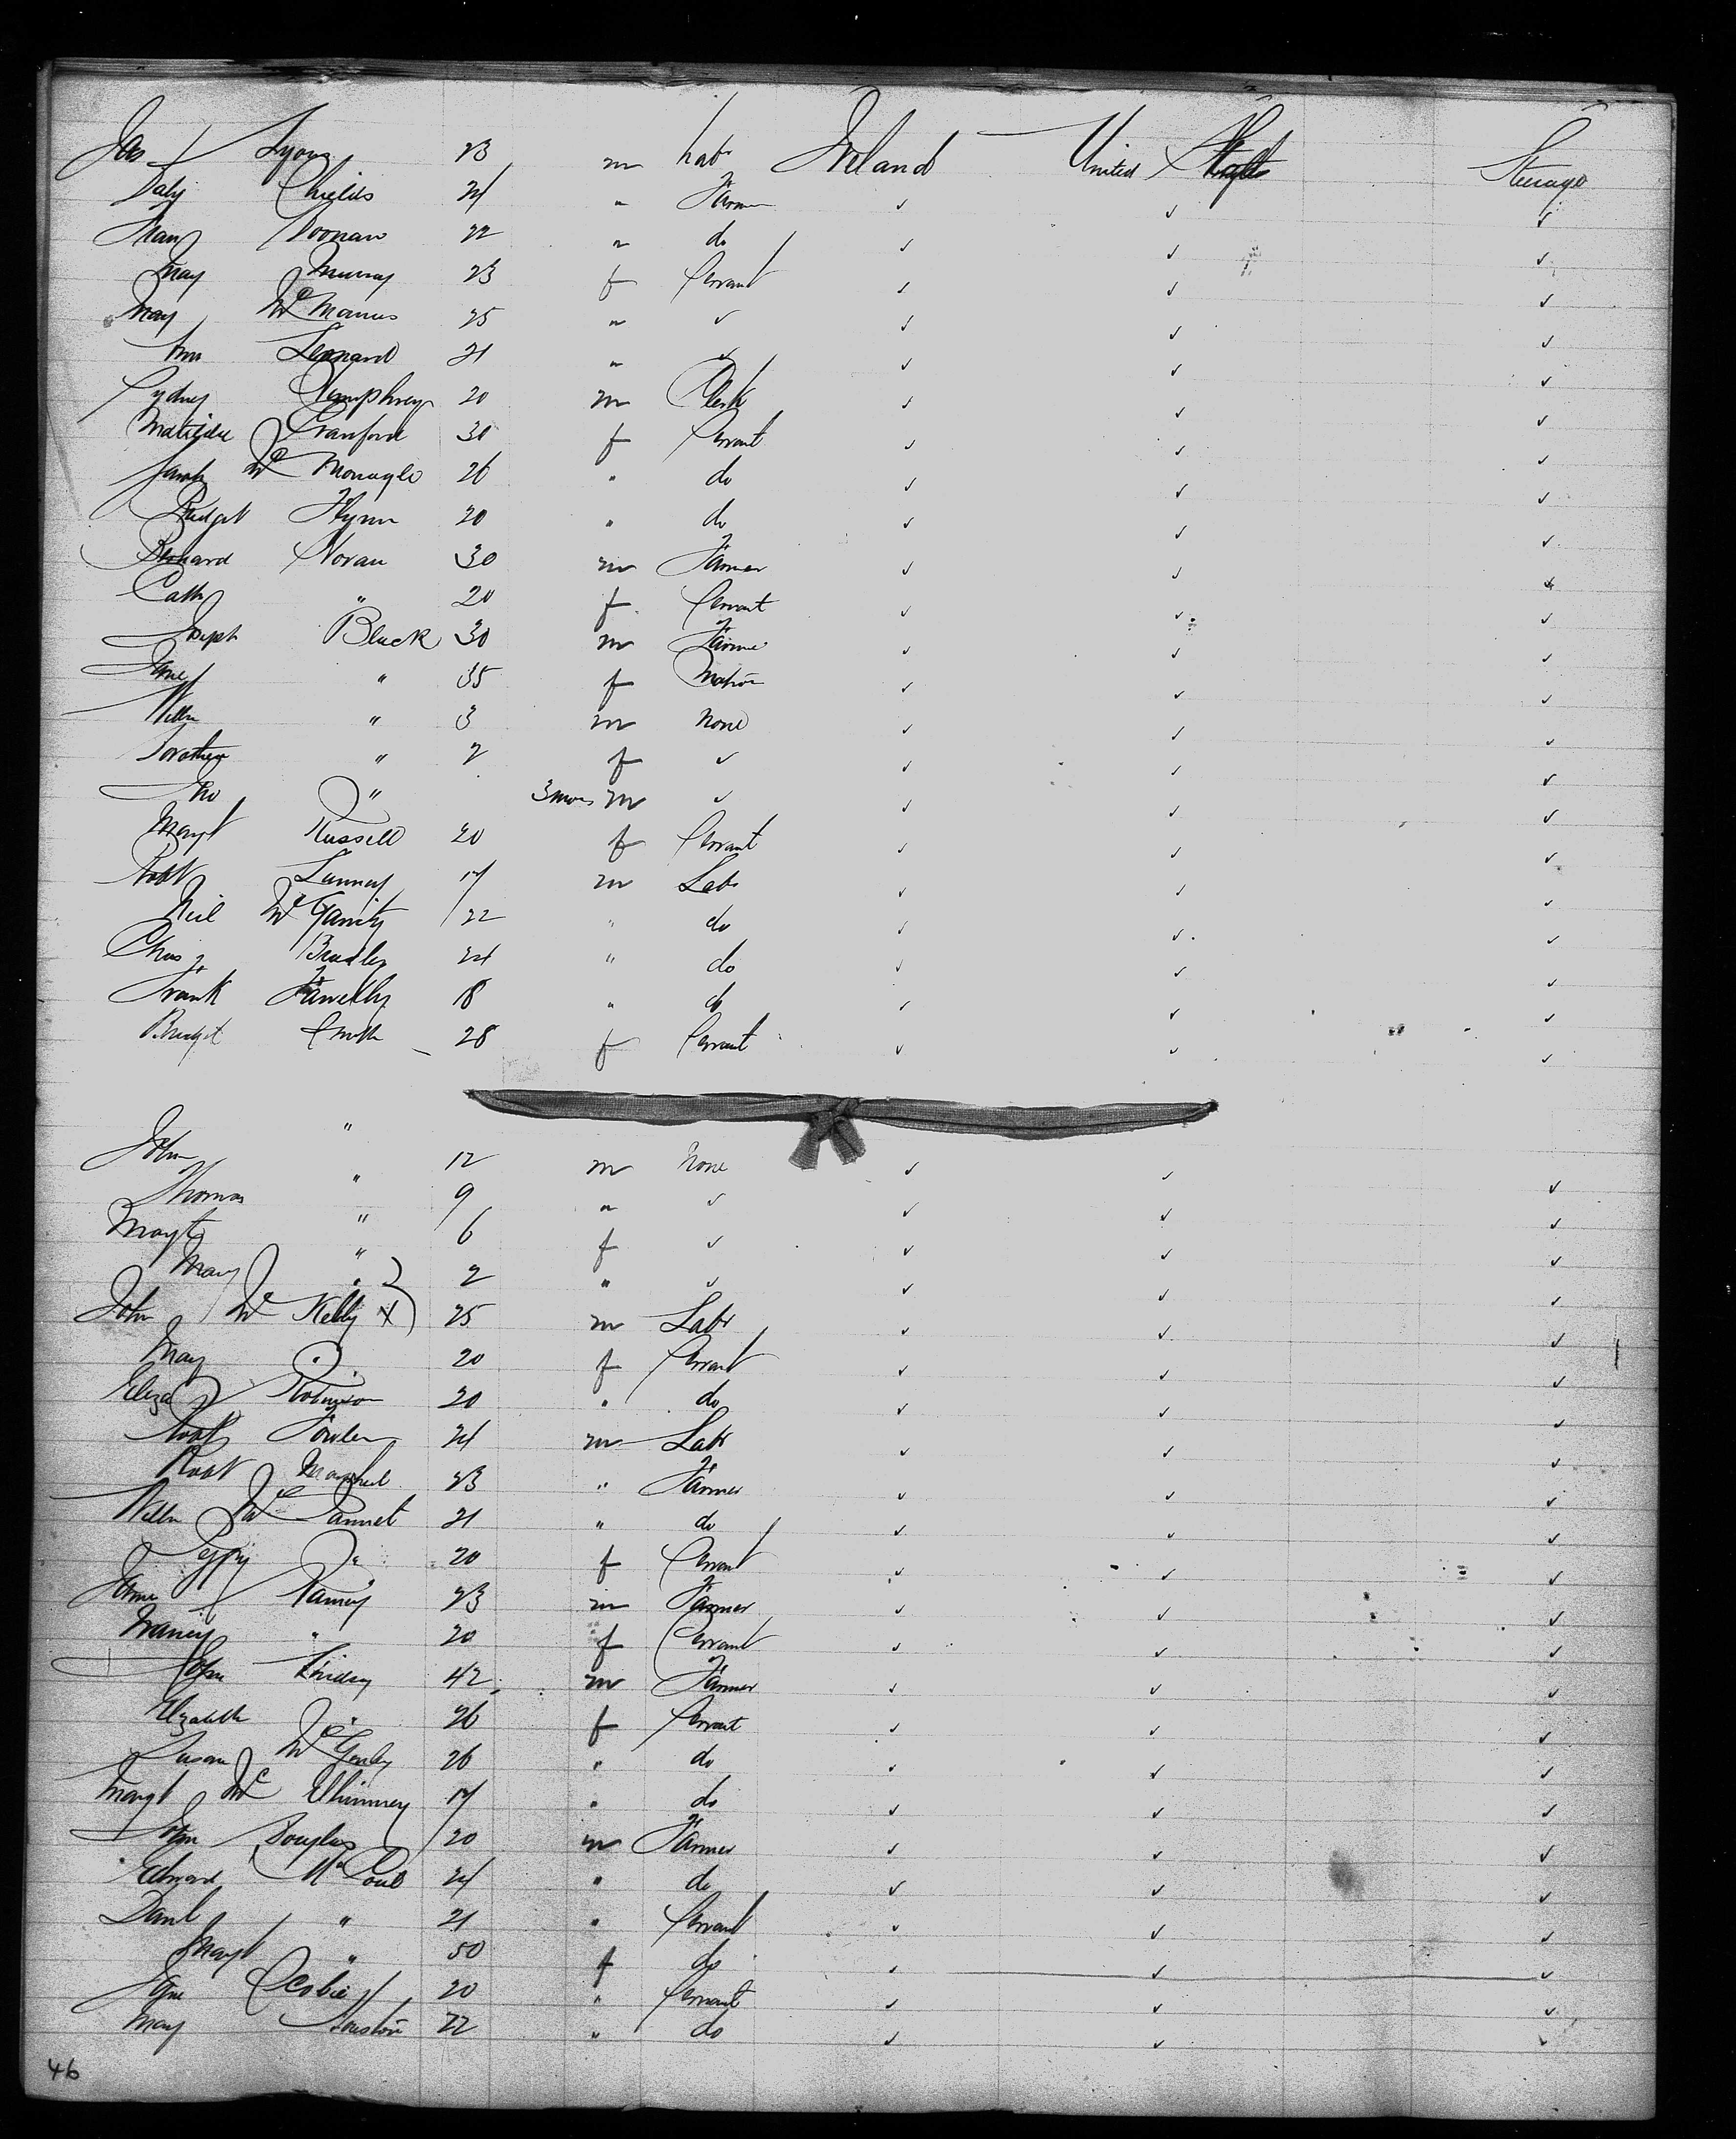 Jas Lyons 23 m Labr Ireland United States Steerage
Patk Shields 24 " Farmer ✓ ✓ ✓
Noonan 22 " do ✓ ✓ ✓
Mary Murray 23 f Servant ✓ ✓ ✓
Mary McManus 25 " ✓ ✓ ✓ ✓
Ann Leonard 21 " ✓ ✓ ✓ ✓
Sydney Humphreys 20 m Clerk ✓ ✓ ✓
Matilda Cranford 30 f Servant ✓ ✓ ✓
Sarah McMonagle 26 " do ✓ ✓ ✓
Bridget Flynn 20 " do ✓ ✓ ✓
Bernard Horan 30 m Farmer ✓ ✓ ✓
Cath " 20 f Servant ✓ ✓ ✓
Joseph Black 30 m Farmer ✓ ✓ ✓
Jane " 35 f Matron ✓ ✓ ✓
Willm " 3 m None ✓ ✓ ✓
Dorothea " 2 f ✓ ✓ ✓ ✓
Jno " 3 mos m ✓ ✓ ✓ ✓
Margt Russell 20 f Servant ✓ ✓ ✓
Robt 17 m Labr ✓ ✓ ✓
Neil McGarrity 22 " do ✓ ✓ ✓
Chas Bradley 24 " do ✓ ✓ ✓
Frank Farrelly 18 " do ✓ ✓ ✓
Bridget Smith 28 f Servant ✓ ✓ ✓
John " 12 m None ✓ ✓ ✓
Thomas " 9 " ✓ ✓ ✓ ✓
Margt " 6 f ✓ ✓ ✓ ✓
Mary " 2 " ✓ ✓ ✓ ✓
John McKelly 25 m Labr ✓ ✓ ✓
Mary " 20 f Servant ✓ ✓ ✓
Eliza Robinson 20 " do ✓ ✓ ✓
Robt Fowler 24 m Labr ✓ ✓ ✓
Robt Marshall 23 " Farmer ✓ ✓ ✓
Willm Mc 21 " do ✓ ✓ ✓
" 20 f Servant ✓ ✓ ✓
James Ramsey 23 m Farmer ✓ ✓ ✓
Nancy " 20 f Servant ✓ ✓ ✓
John Lindsay 42 m Farmer ✓ ✓ ✓
Elizabeth " 26 f Servant ✓ ✓ ✓
Susan McGinley 26 " do ✓ ✓ ✓
Margt McElhinney 17 " do ✓ ✓ ✓
John Douglas 20 m Farmer ✓ ✓ ✓
Edward McCoul 24 " do ✓ ✓ ✓
Danl " 21 " Servant ✓ ✓ ✓
Margt " 50 f do ✓ ✓ ✓
Jane Scobie 20 " Servant ✓ ✓ ✓
Mary Houston 22 " do ✓ ✓ ✓
46